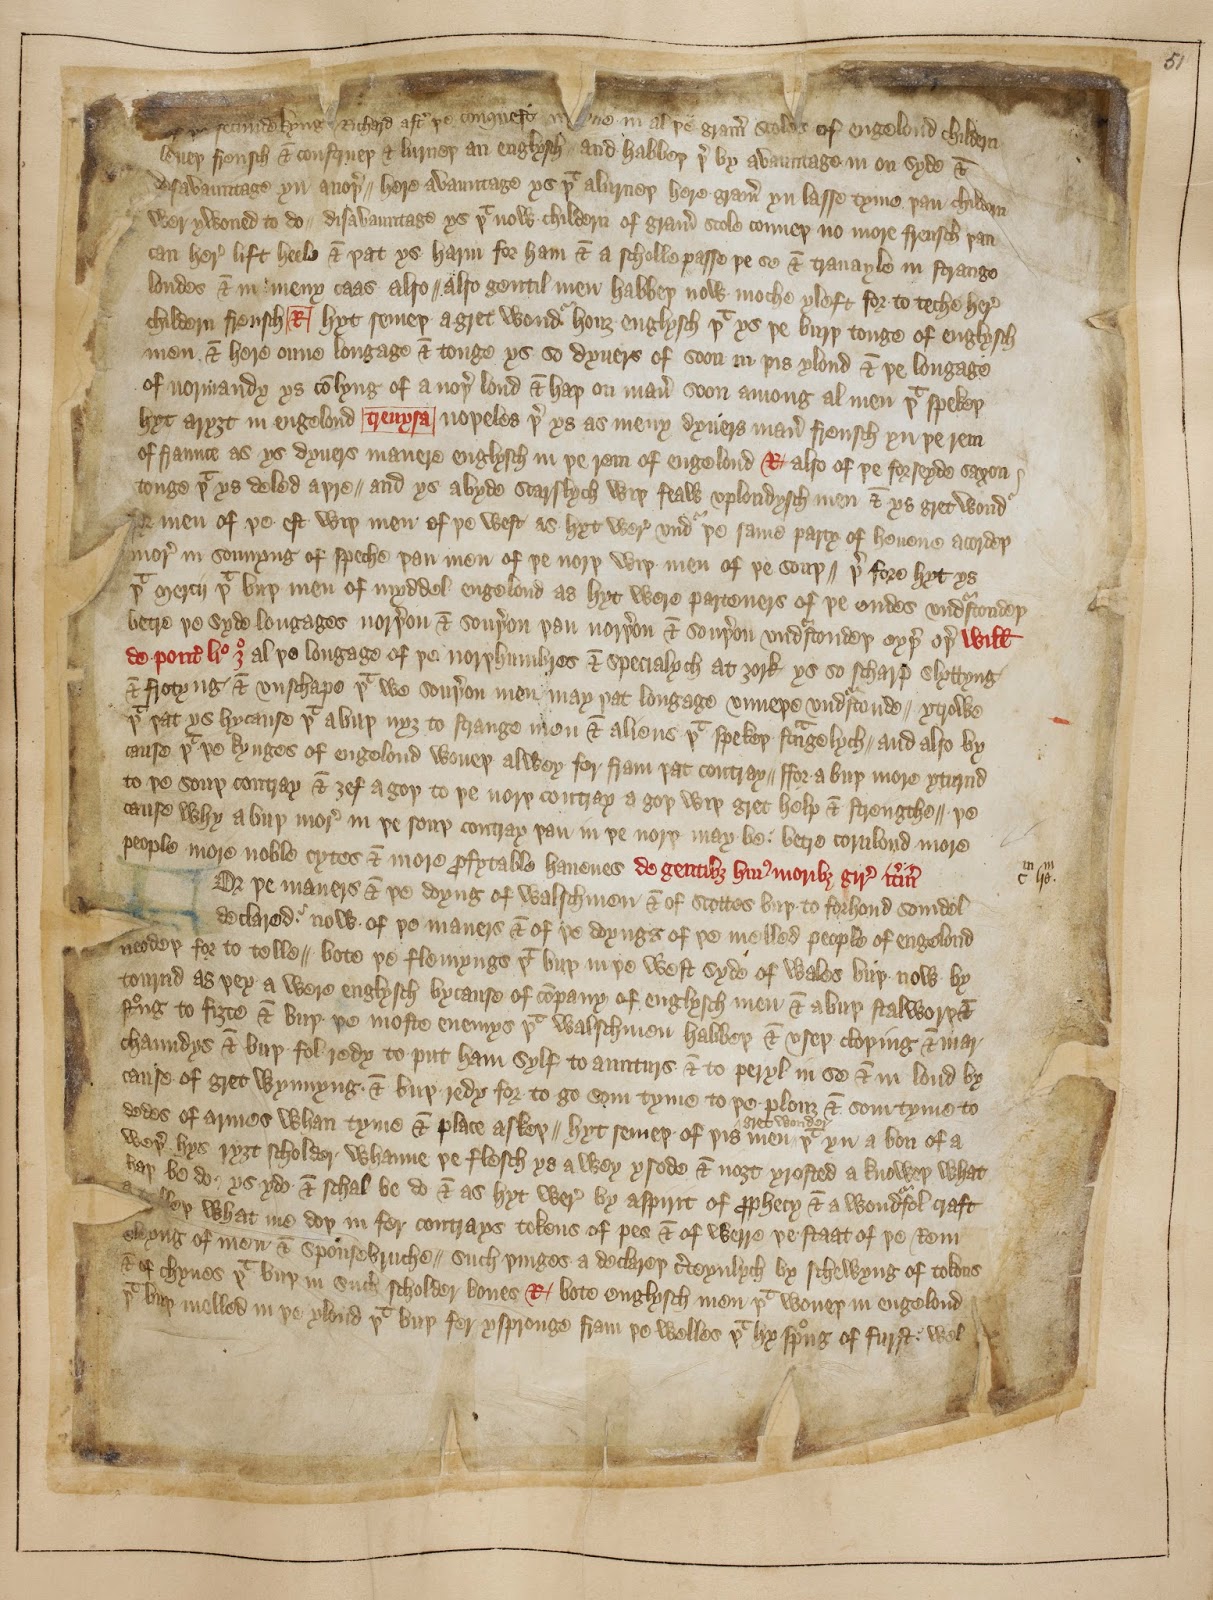 51
secunde kyng Richard aftʼ þe conquest in al þe gramʼ scoles of engelond childern
leueþ frensch & construeþ & lurneþ an englysch and habbeþ þʼ by auauntage in on syde &
disavauntage yn anoþʼ // here avauntage ys þᵗ a lurneþ here gramʼ yn lasse tyme þan childern
wer ywoned to do // disavauntage ys þᵗ now childern of gramʼ scole conneþ no more frensch þan
can herʼ lift heele & þat ys harm for ham & a scholle passe þe se & trauayle in strange
londes & in meny caas also // also gentil men habbeþ now moche yleft for to teche herʼ
childern frensch R hyt semeþ a gret wondʼ houȝ englysch þᵗ ys þe burþ tonge of englysch
men & here oune longage & tonge ys so dyuers of soon in þis ylond & þe longage
of normandy ys comlyng of a noþʼ lond & haþ on manʼ soon among al men þᵗ spekeþ
hyt aryȝt in engelond treuysa noþeles þʼ ys as meny dyuers manʼ frensch yn þe rem
of fraunce as ys dyuers manere englysch in þe rem of engelond R also of þe forseyde saxon
tonge þᵗ ys deled aþre // and ys abyde scarslych wiþ feaw vplondysch men & ys gret wondʼ
for men of þe est wiþ men of þe west as hyt werʼ vndʼ þe same party of heuene acordeþ
morʼ in sounyng of speche þan men of þe norþ wiþ men of þe souþ // þʼ fore hyt ys
þᵗ mercii þᵗ buþ men of myddel engelond as hyt were parteners of þe endes vndʼstondeþ
betre þe syde longages norþʼon & souþʼon þan norþʼon & souþʼon vndʼstondeþ eyþʼ oþʼ Will
de pontʼ liº 3º al þe longage of þe norþhumbres & specialych at ȝork ys so scharp slyttyng
& frotyng & vnschape þᵗ we souþʼon men may þat longage vnneþe vndʼstonde // ytrowe
þᵗ þat ys bycause þᵗ a buþ nyȝ to strange men & aliens þᵗ spekeþ strᵃgelych // and also by
cause þᵗ þe kynges of engelond woneþ alwey fer fram þat contray // ffor a buþ more yturnd
to þe souþ contray & ȝef a goþ to þe norþ contray a goþ wiþ gret help & strengthe // þe
cause why a buþ morʼ in þe souþ contray þan in þe norþ may be betre cornlond more
people more noble cytes & more profytable hauenes de gentibȝ huiʼ moribȝ
Of þe maners & þe doyng of walschmen & of scottes buþ to forhond somdel
declared now of þe maners & of þe doyngs of þe melled people of engelond
neodeþ for to telle // bote þe flemyngs þᵗ buþ in þe west syde of wales buþ now by
tournd as þey a were englysch bycause of cōpany of englysch men & a buþ stalworþ &
stᵒng to fiȝte & buþ þe moste enemys þᵗ walschmen habbeþ & vseþ cloþing & mar
chaundys & buþ fol redy to put ham sylf to aunturs & to peryl in se & in lond by
cause of gret wynnyng & buþ redy for to go som tyme to þe plouȝ & som tyme to
dedes of armes whan tyme & place askeþ // hyt semeþ of þis men gret wonder þᵗ yn a bon of a
weþʼ hys ryȝt scholder whanne þe flesch ys awey ysode & noȝt yrosted a knoweþ what
haþ be do ys ydo & schal be do & as hyt werʼ by aspirit of prophecy & a wondʼfol craft
a telleþ what me doþ in fer contrays tokens of pes & of werre þe staat of þe rem
sleyng of men & spousebruche // such þinges a declareþ cʼteynlych by schewyng of tokens
& of thynes þᵗ buþ in such scholder bones R bote englysch men þᵗ woneþ in engelond
þᵗ buþ melled in þe ylond þᵗ buþ fer yspronge fram þe welles þᵗ hy spᵒng of furst wel